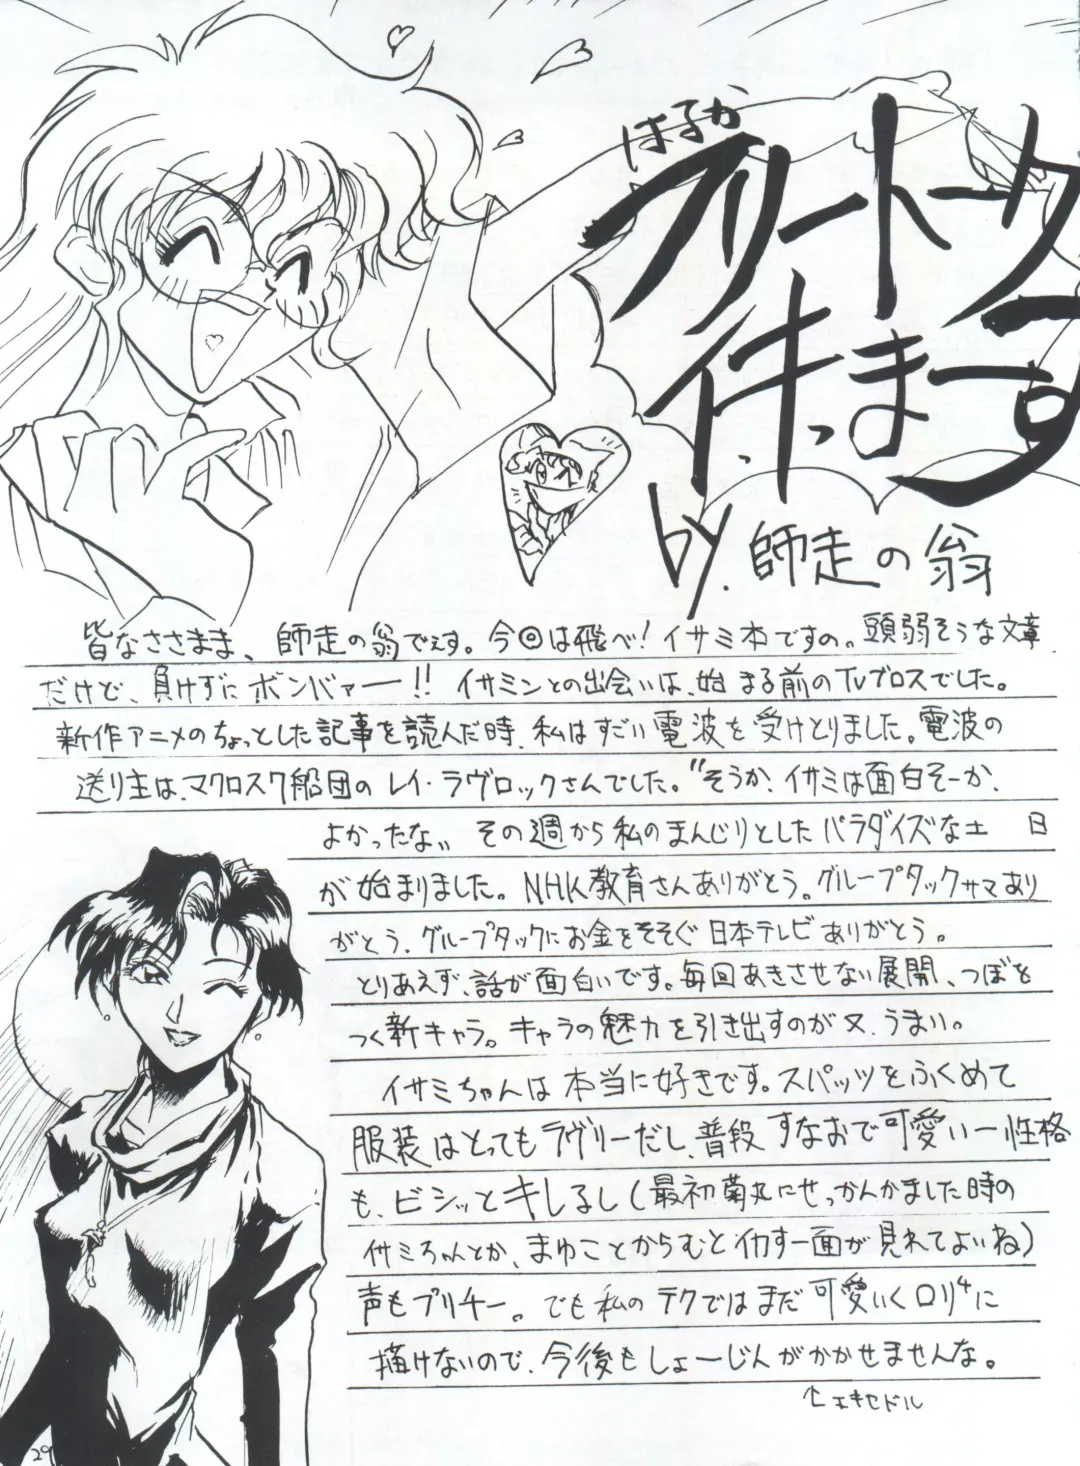 はるか
フリートーク
イ、キ、まーす
by. 師走の翁
皆なささまま、師走の翁でえす。今回は飛べ!イサミ本ですの。頭弱そうな文章
だけど、負けずにボンバァー!! イサミンとの出会いは、始まる前のTVブロスでした。
新作アニメのちょっとした記事を読んだ時、私はすごい電波を受けとりました。電波の
送り主は、マクロス7船団のレイ・ラヴロックさんでした。"そうか、イサミは面白そーか、
よかったな〃 その週から私のまんじりとしたパラダイズな土 日
が始まりました。NHK教育さんありがとう。グループタックサマあり
がとう、グループタックにお金をそそぐ日本テレビありがとう。
とりあえず、話が面白いです。毎回あきさせない展開、つぼを
つく新キャラ。キャラの魅力を引き出すのが又、うまい。
イサミちゃんは本当に好きです。スパッツをふくめて
服装はとってもラヴリーだし、普段すなおで可愛いー性格
も、ビシッとキしるし(最初菊丸にせっかんかました時の
イサミちゃんとか、まゆことからむとイカすー面が見れてよいね)
声もプリチー。でも私のテクではまだ可愛いくロリ⁴に
描けないので、今後もしょーじんがかかせませんな。
↑ヒエキセドル
29